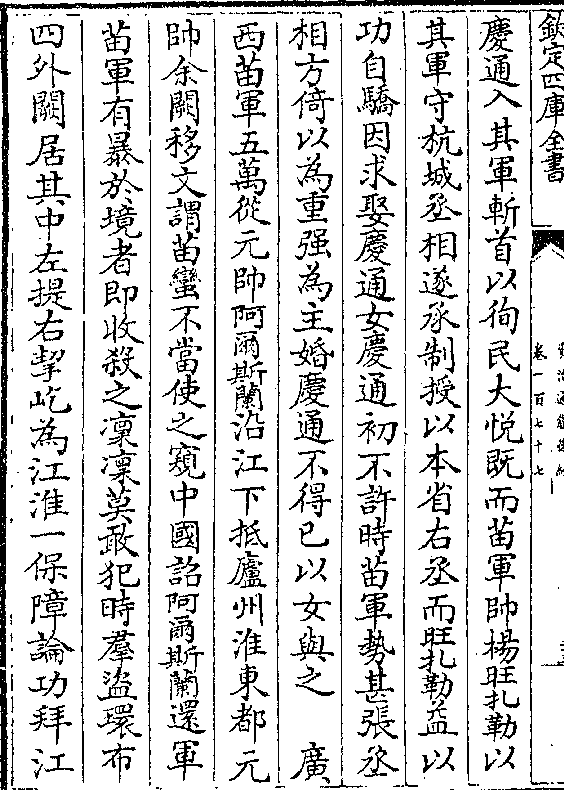 欽定四庫全書
卷一百七十七
慶通入其軍斬首以徇民大悅既而苗軍帥楊旺扎勒以
其軍守杭城丞相遂承制授以本省右丞而旺扎勒益以
功自驕因求娶慶通女慶通初不許時苗軍勢甚張丞
相方倚以為重强為主婚慶通不得已以女與之　廣
西苗軍五萬從元帥阿爾斯蘭沿江下抵廬州淮東都元
帥余闕移文謂苗蠻不當使之窺中國詔阿爾斯蘭還軍
苗軍有暴於境者即收殺之凜凜莫敢犯時羣盜環布
四外闕居其中左提右挈屹為江淮一保障論功拜江